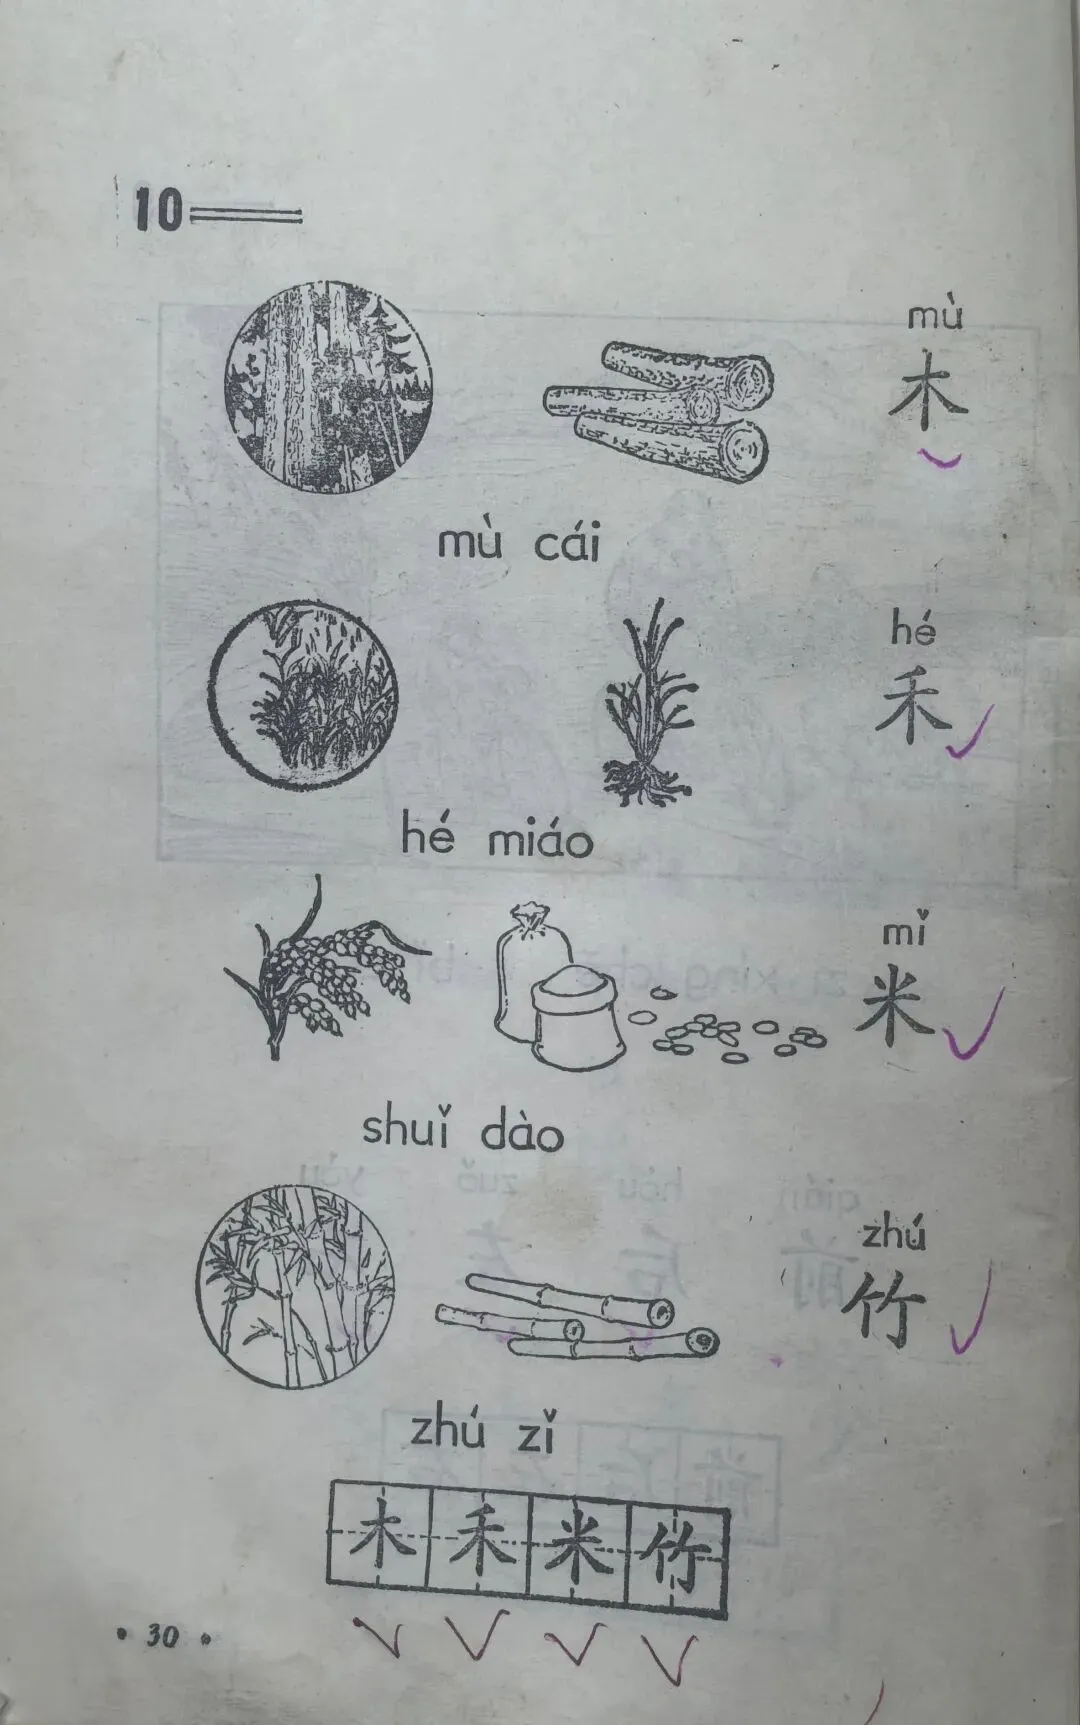 10
mù
木
mù cái
hé
禾
hé miáo
mǐ
米
shuǐ dào
zhú
竹
zhú zǐ
木 禾 米 竹
• 30 •